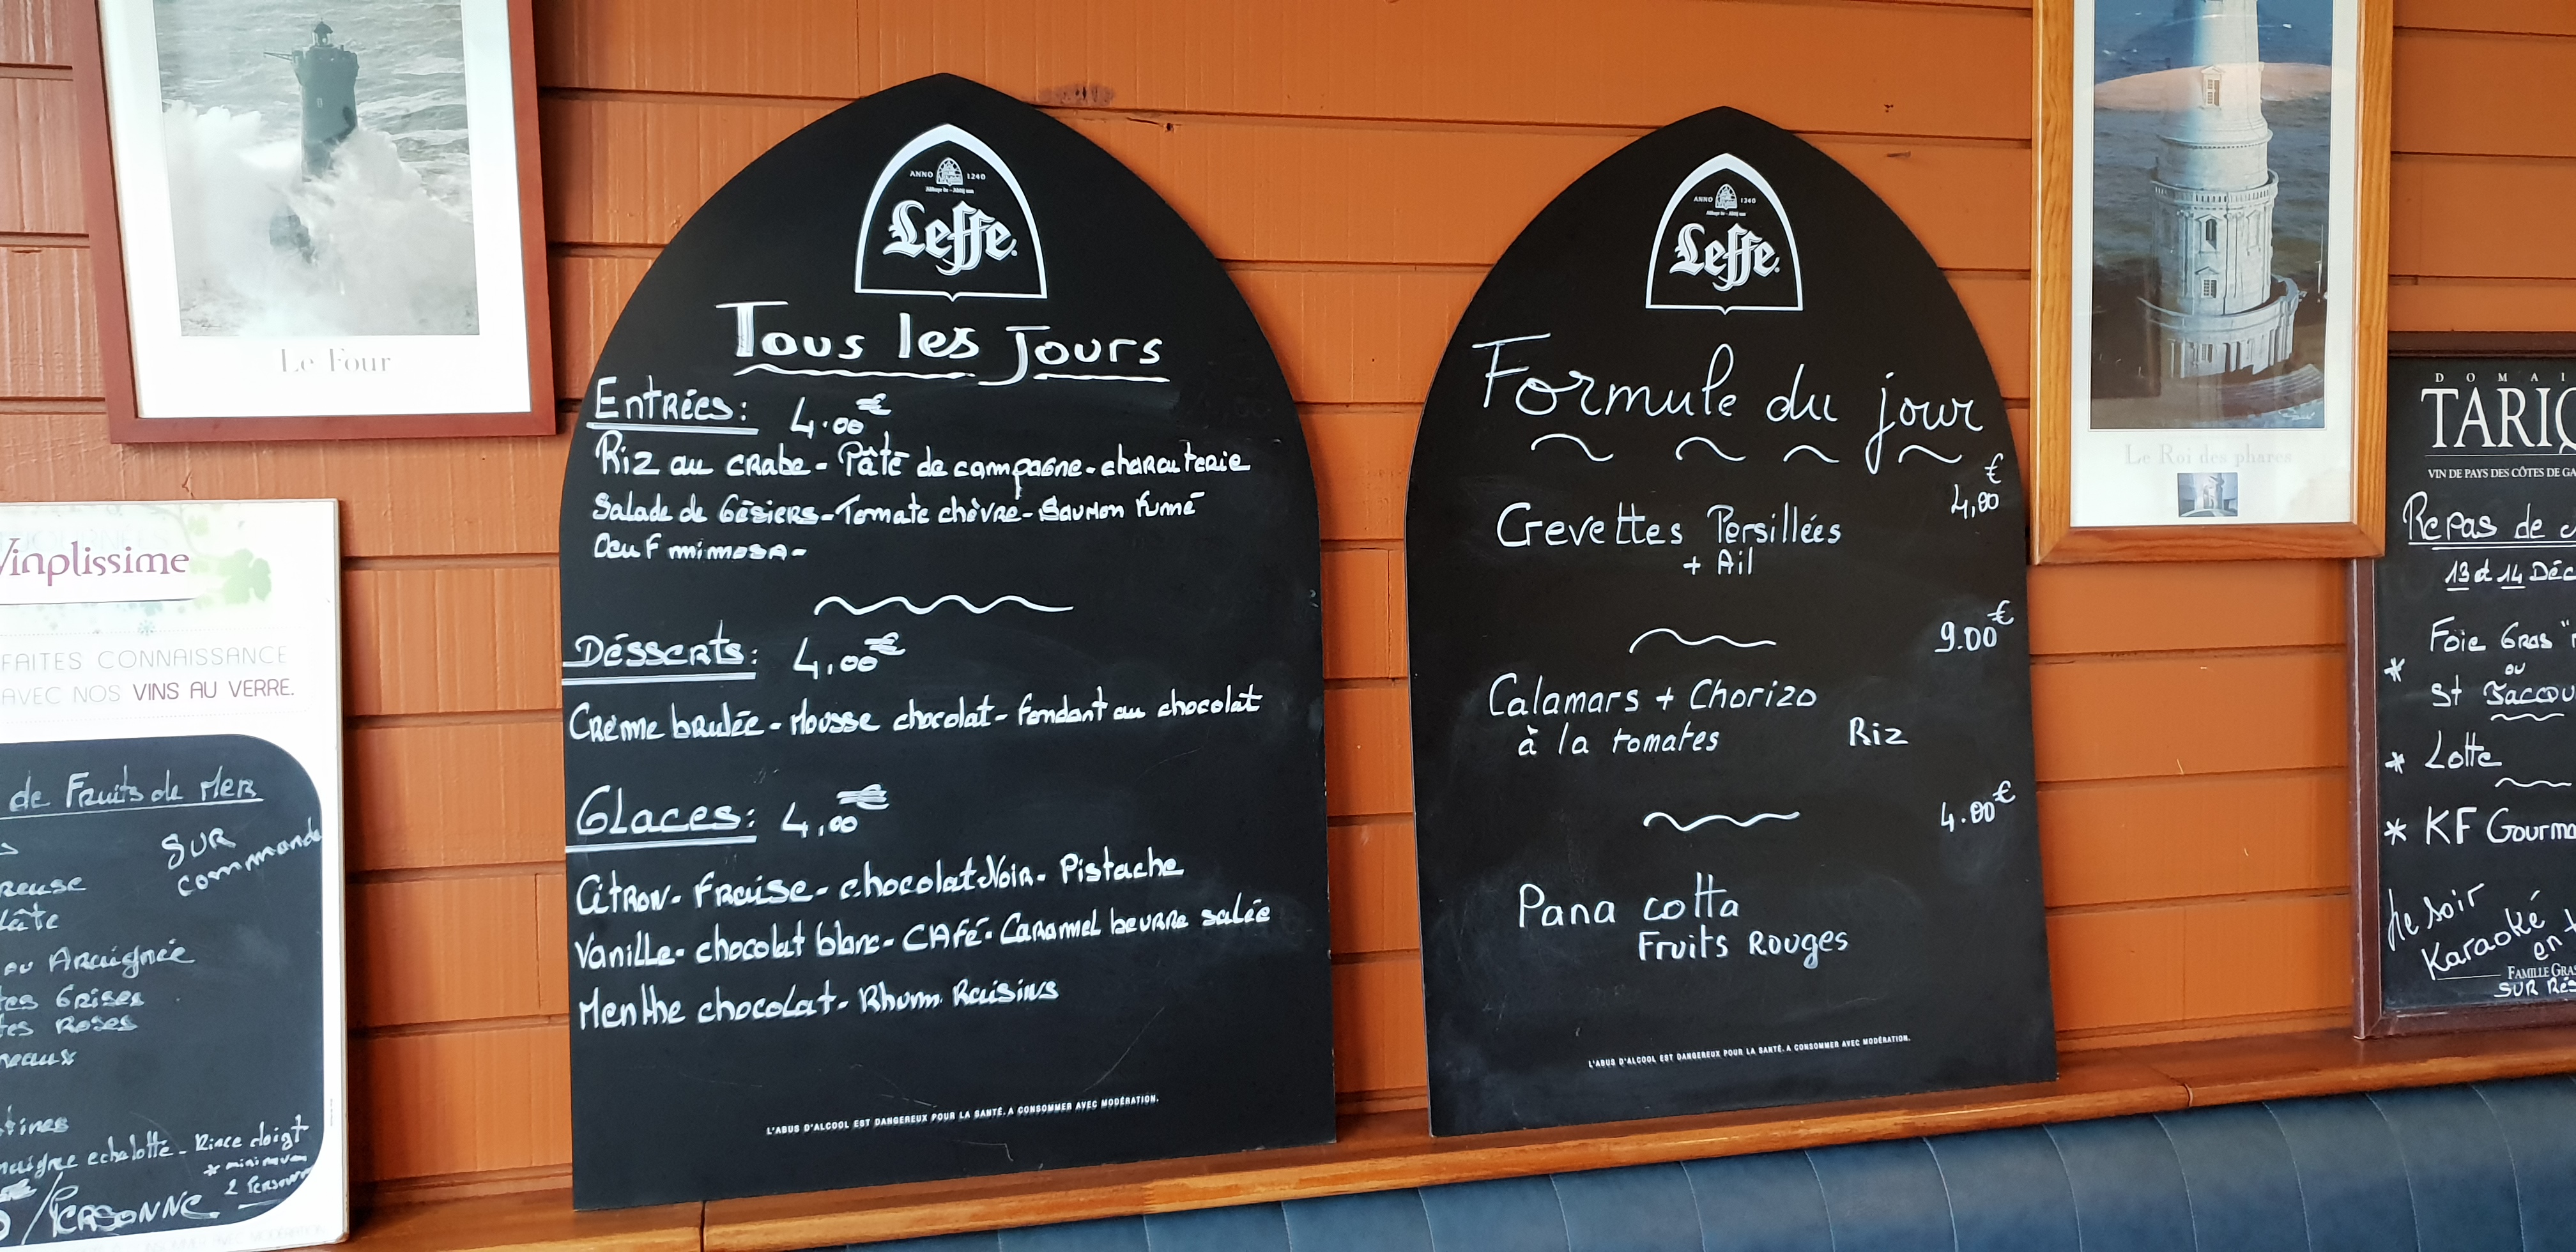 Le Four
Vinplissime
FAITES CONNAISSANCE
AVEC NOS VINS AU VERRE.
de Fruits de Mer
SUR
commande
reuse
ou Araignée
Grises
Roses
echalotte - Rince doigt
* minimum
2 Personnes
/Personne
ANNO 1240
Leffe
Tous les Jours
Entrées: 4.00€
Riz au crabe - Pâté de campagne - charcuterie
Salade de Gésiers - Tomate chèvre - Saumon Fumé
Oeuf mimosa -
Désserts: 4,00€
Crème brulée - Mousse chocolat - fondant au chocolat
Glaces: 4,00€
Citron - Fraise - chocolat Noir - Pistache
Vanille - chocolat blanc - CAFé - Caramel beurre salée
Menthe chocolat - Rhum Raisins
L'ABUS D'ALCOOL EST DANGEREUX POUR LA SANTÉ. A CONSOMMER AVEC MODÉRATION.
ANNO 1240
Leffe
Formule du jour
4,00€
Crevettes Persillées
+ Ail
9.00€
Calamars + Chorizo
à la tomates Riz
4.00€
Pana cotta
Fruits Rouges
L'ABUS D'ALCOOL EST DANGEREUX POUR LA SANTÉ. A CONSOMMER AVEC MODÉRATION.
Le Roi des phares
DOMAI
TARIQ
VIN DE PAYS DES CÔTES DE GA
Repas de
13 et 14 Déc
Foie Gras
ou
* St Jacqu
* Lotte
* KF Gourma
Le soir
Karaoké
en
FAMILLE GRA
SUR Rés